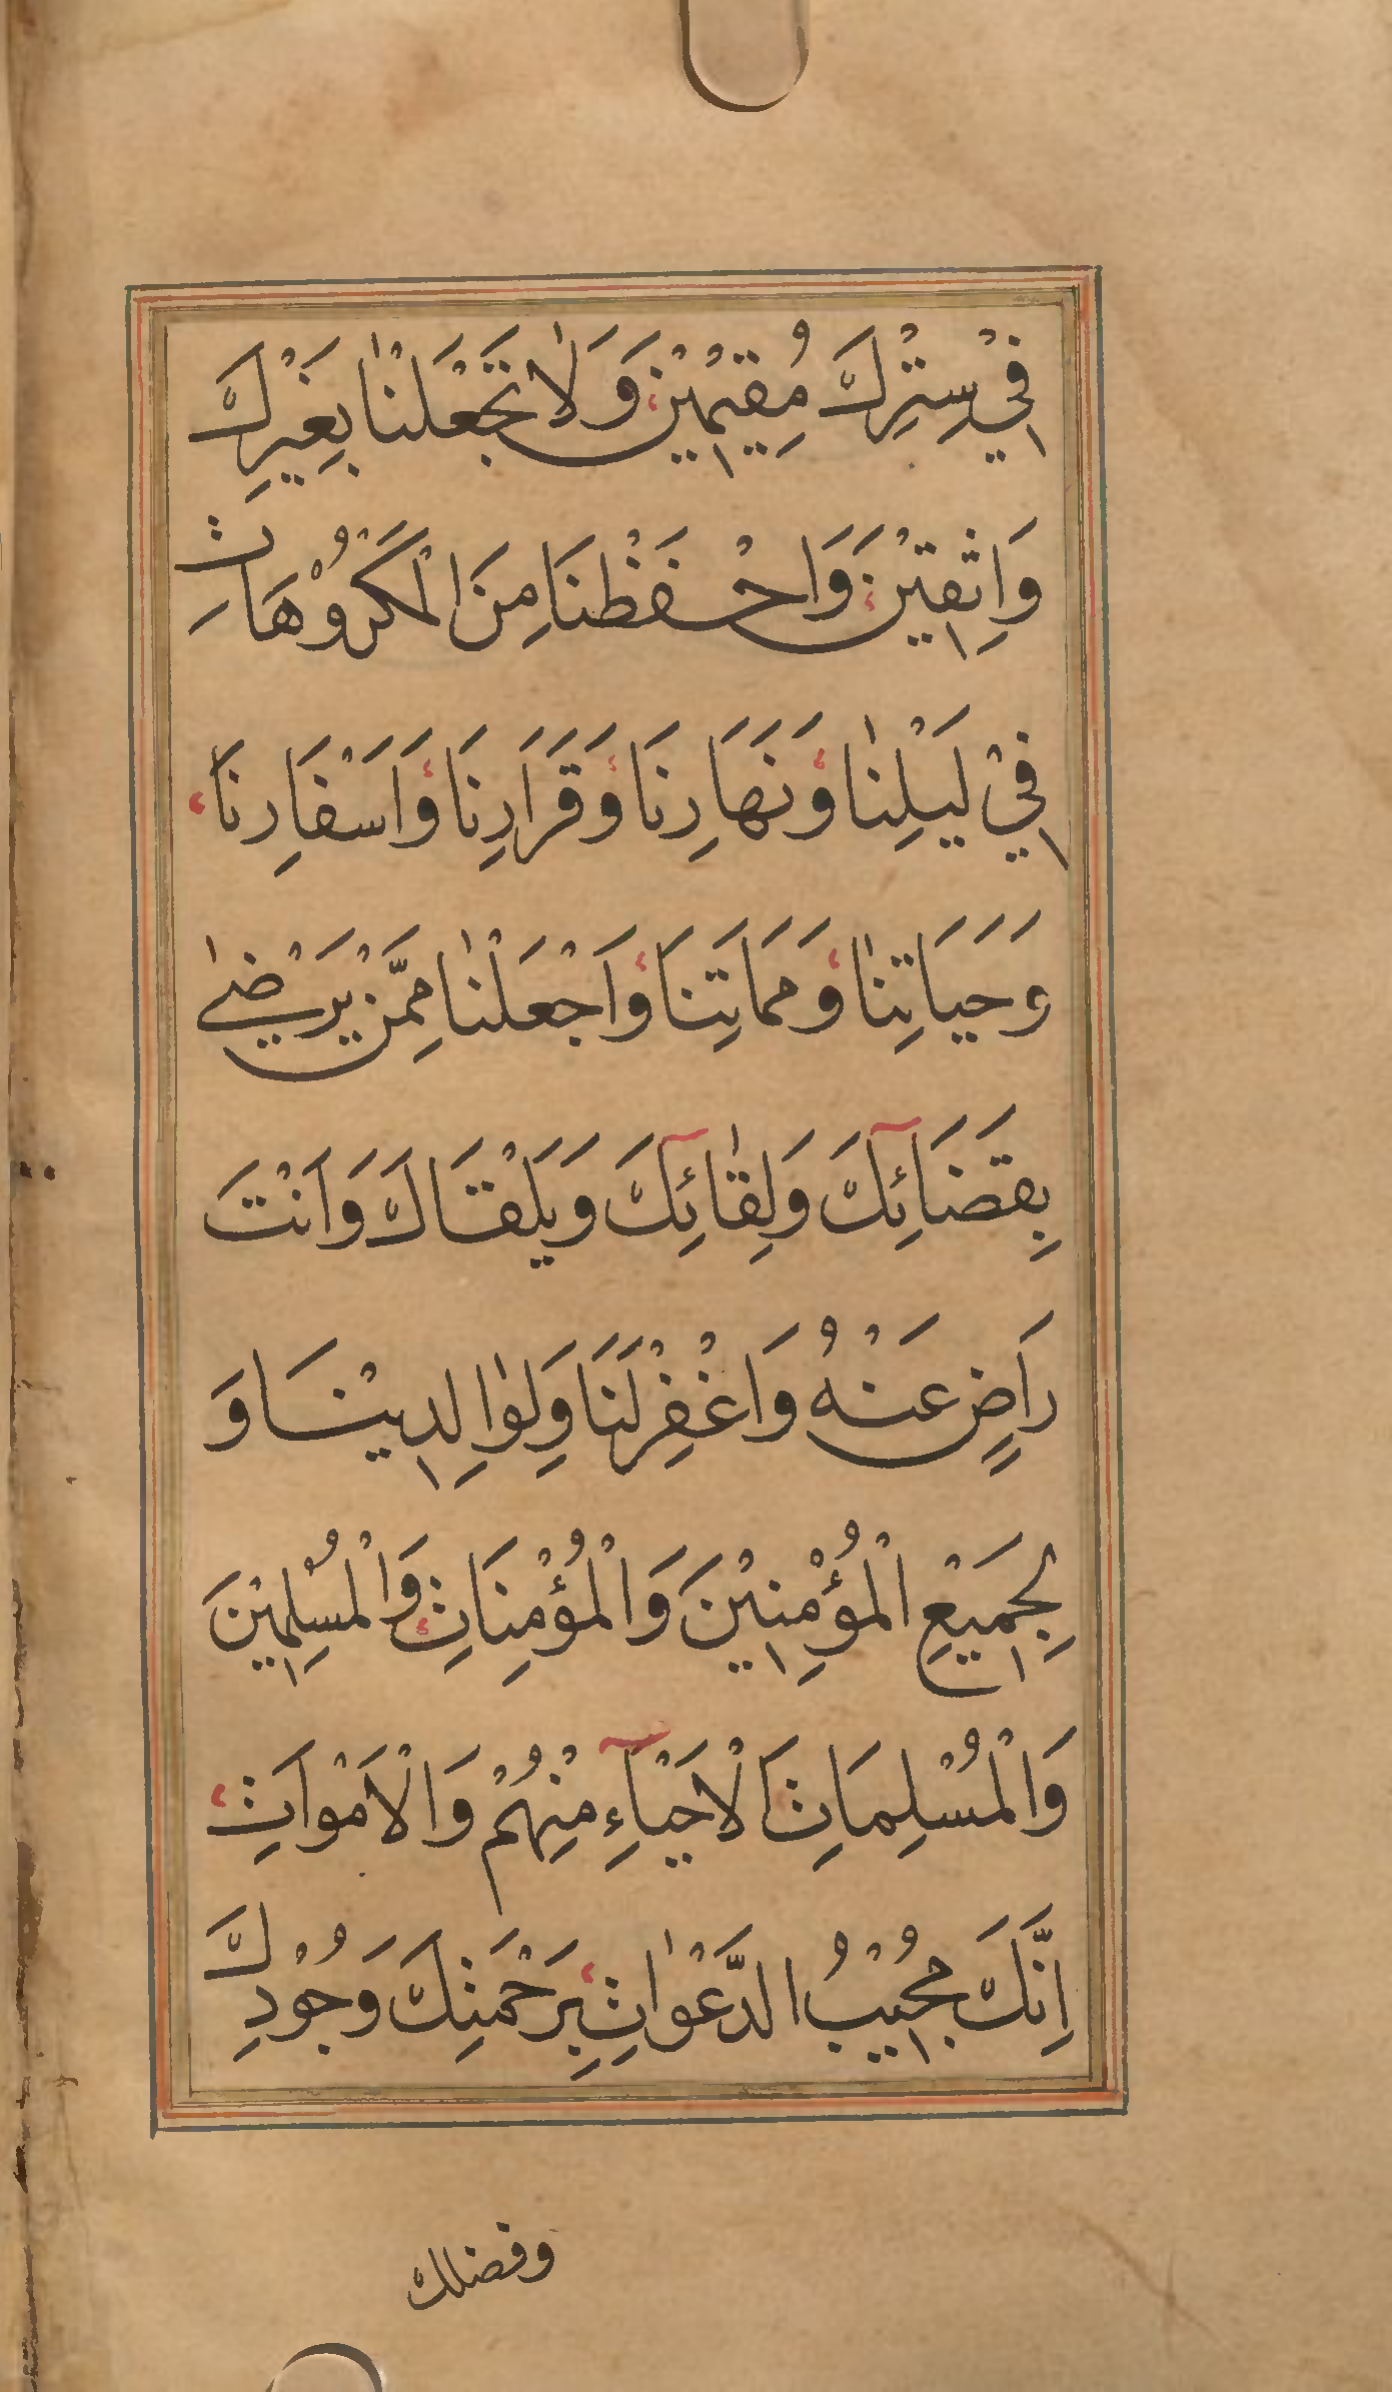 فِيْ سِتْرِكَ مُقِيْمِيْنَ وَلَا تَجْعَلْنَا بِغَيْرِكَ
وَاثِقِيْنَ وَاحْفَظْنَا مِنَ الْمَكْرُوْهَاتِ
فِيْ لَيْلِنَا وَنَهَارِنَا وَقَرَارِنَا وَاَسْفَارِنَا
وَحَيَاتِنَا وَمَمَاتِنَا وَاجْعَلْنَا مِمَّنْ يَرْضٰى
بِقَضَآئِكَ وَلِقَآئِكَ وَيَلْقَاكَ وَاَنْتَ
رَاضٍ عَنْهُ وَاغْفِرْ لَنَا وَلِوَالِدِيْنَا وَ
لِجَمِيْعِ الْمُؤْمِنِيْنَ وَالْمُؤْمِنَاتِ وَالْمُسْلِمِيْنَ
وَالْمُسْلِمَاتِ اَلْاَحْيَآءِ مِنْهُمْ وَالْاَمْوَاتِ
اِنَّكَ مُجِيْبُ الدَّعْوَاتِ بِرَحْمَتِكَ وَجُوْدِكَ
وفضلك